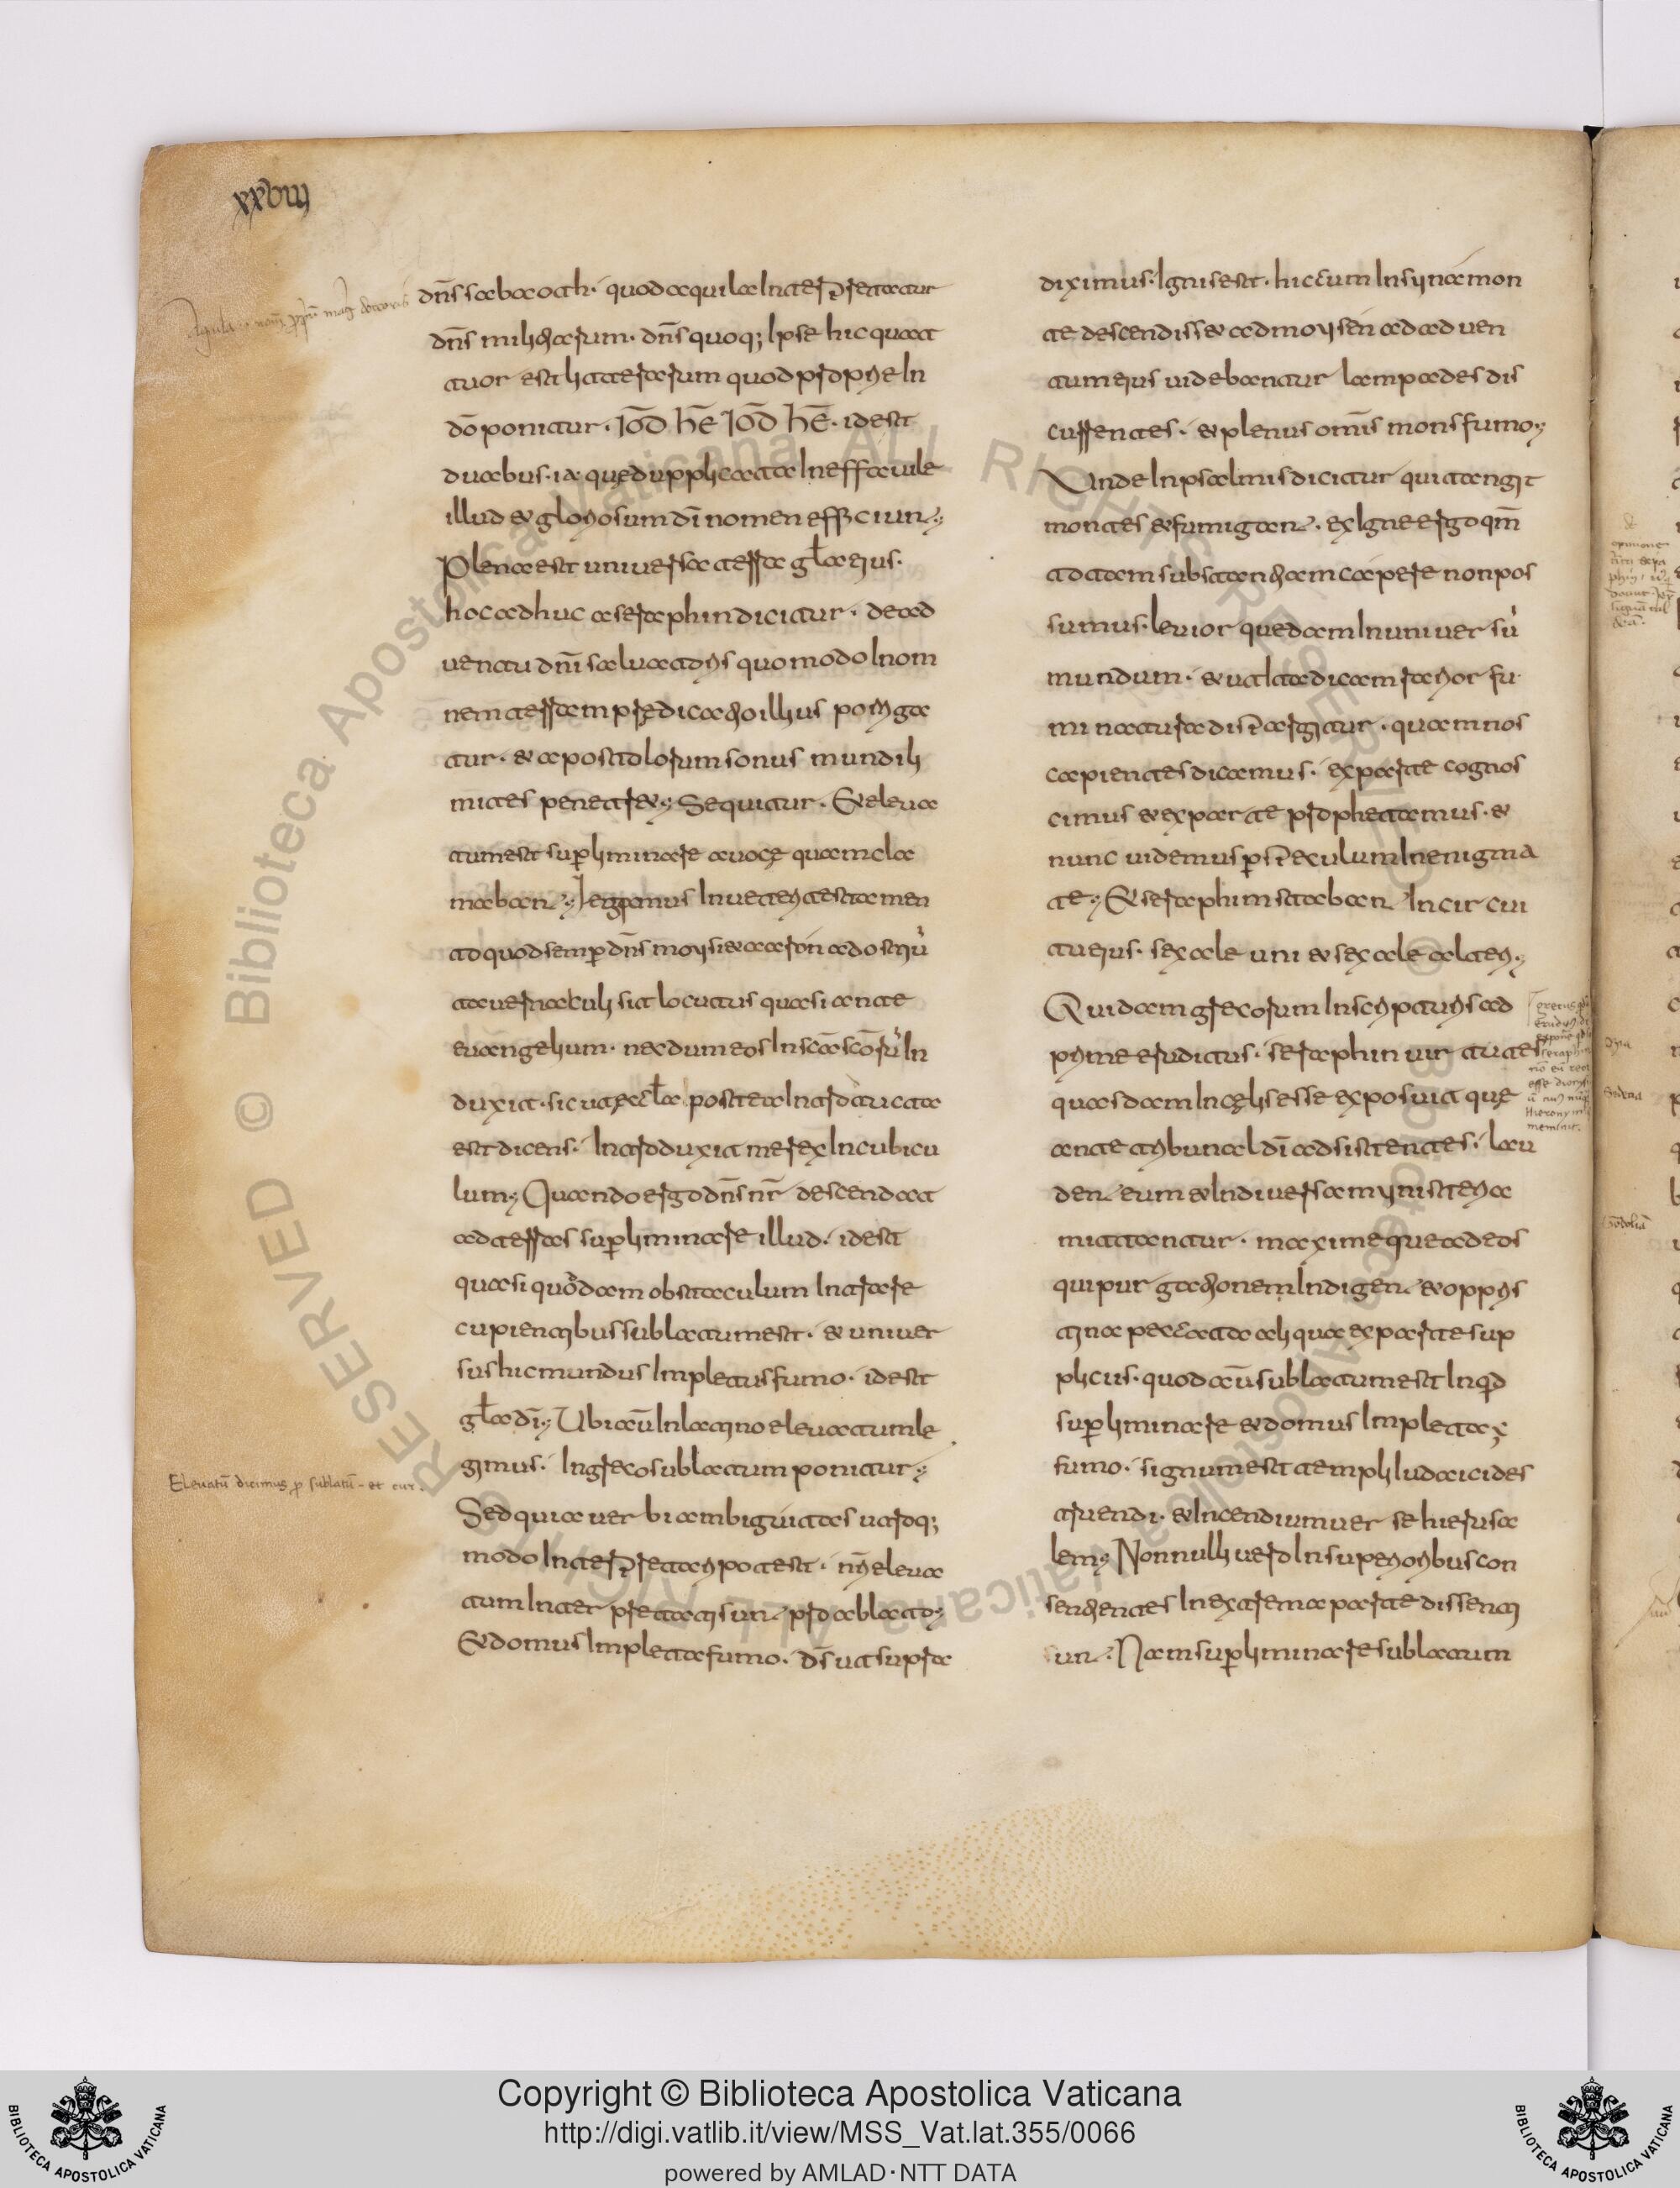 xxviiii
dn̄s sabaoth· quod aquila interp̄retatur
dn̄s militiarum· dn̄s quoq; ipse hic quat
tuor est litterarum quod proprie in
dō ponitur· IŌD hē IŌD hē· idest
duabus· ia· que dupplicata ineffabile
illud & gloriosum dī nomen efficiun·;
Plena est universa terra gƚa eius·
hoc adhuc a seraphin dicitur· de ad
uentu dnī salvatoris quomodo in om
nem terram praedicatio illius porriga
tur· & apostolorum sonus mundi li
mites penetr&·; Sequitur· Et eleva
tum est sup̄liminare a voce qua cla
maban·; Legimus in veteri testamen
to quod semp̄ dn̄s moysi & aaron ad ostiū
tabernaculi sit locutus quasi ante
euangelium· necdum eos in scā scōrū in
duxit· sicut eccƚa postea introducta
est dicens· Introduxit me rex in cubicu
lum·; Quando ergo dn̄s nr̄ descendat
ad terras sup̄liminare illud· idest
quasi quoddam obstaculum intrare
cupientibus sublatum est· & univer
sus hic mundus impletus fumo· idest
gƚa dī·; Ubi aū in latino elevatum le
gimus· in greco sublatum ponitur·;
Sed quia verbi ambiguitas utroq;
modo interp̄retari potest· nr̄i eleva
tum interpretati sun· pro ablato·;
Et domus impleta fumo· dī ut supra
diximus· ignis est· hic cum in syna mon
te descendiss& ad moysen ad adven
tum eius videbantur lampades dis
currentes· & plenus om̄is mons fumo·;
Unde in psalmis dicitur qui tangit
montes & fumigan· ex igne ergo qm̄
totam substantiam capere non pos
sumus· levior quedam in universū
mundum· & ut ita dicam rarior fu
mi natura dispargitur· quam nos
capientes dicamus· ex parte cognos
cimus & ex parte prophetamus· &
nunc videmus p̄ speculum in enigma
te·; Et seraphim staban in circui
tu eius· sex ale uni & sex ale alteri·;
Quidam grecorum in scripturis ad
prime eruditus· seraphin virtutes
quasdam in celis esse exposuit que
ante tribunal dī adsistentes· lau
den eum & in diversa mynisteria
mittantur· maxime que ad eos
qui purgationem indigen & ob pris
tina peccata aliqua ex parte sup
plicus· quod aū sublatum est inqd
sup̄liminare & domus impleta ē
fumo· signum est templi iudaici des
truendi· & incendium uerse hierusa
lem·; Nonnulli vero in superioribus con
sentientes in extrema parte dissenti
un· Nam sup̄liminare sublatum
Elevatū dicimus p̄ sublatū - et cur
Copyright © Biblioteca Apostolica Vaticana
http://digi.vatlib.it/view/MSS_Vat.lat.355/0066
powered by AMLAD·NTT DATA
BIBLIOTECA APOSTOLICA VATICANA
BIBLIOTECA APOSTOLICA VATICANA